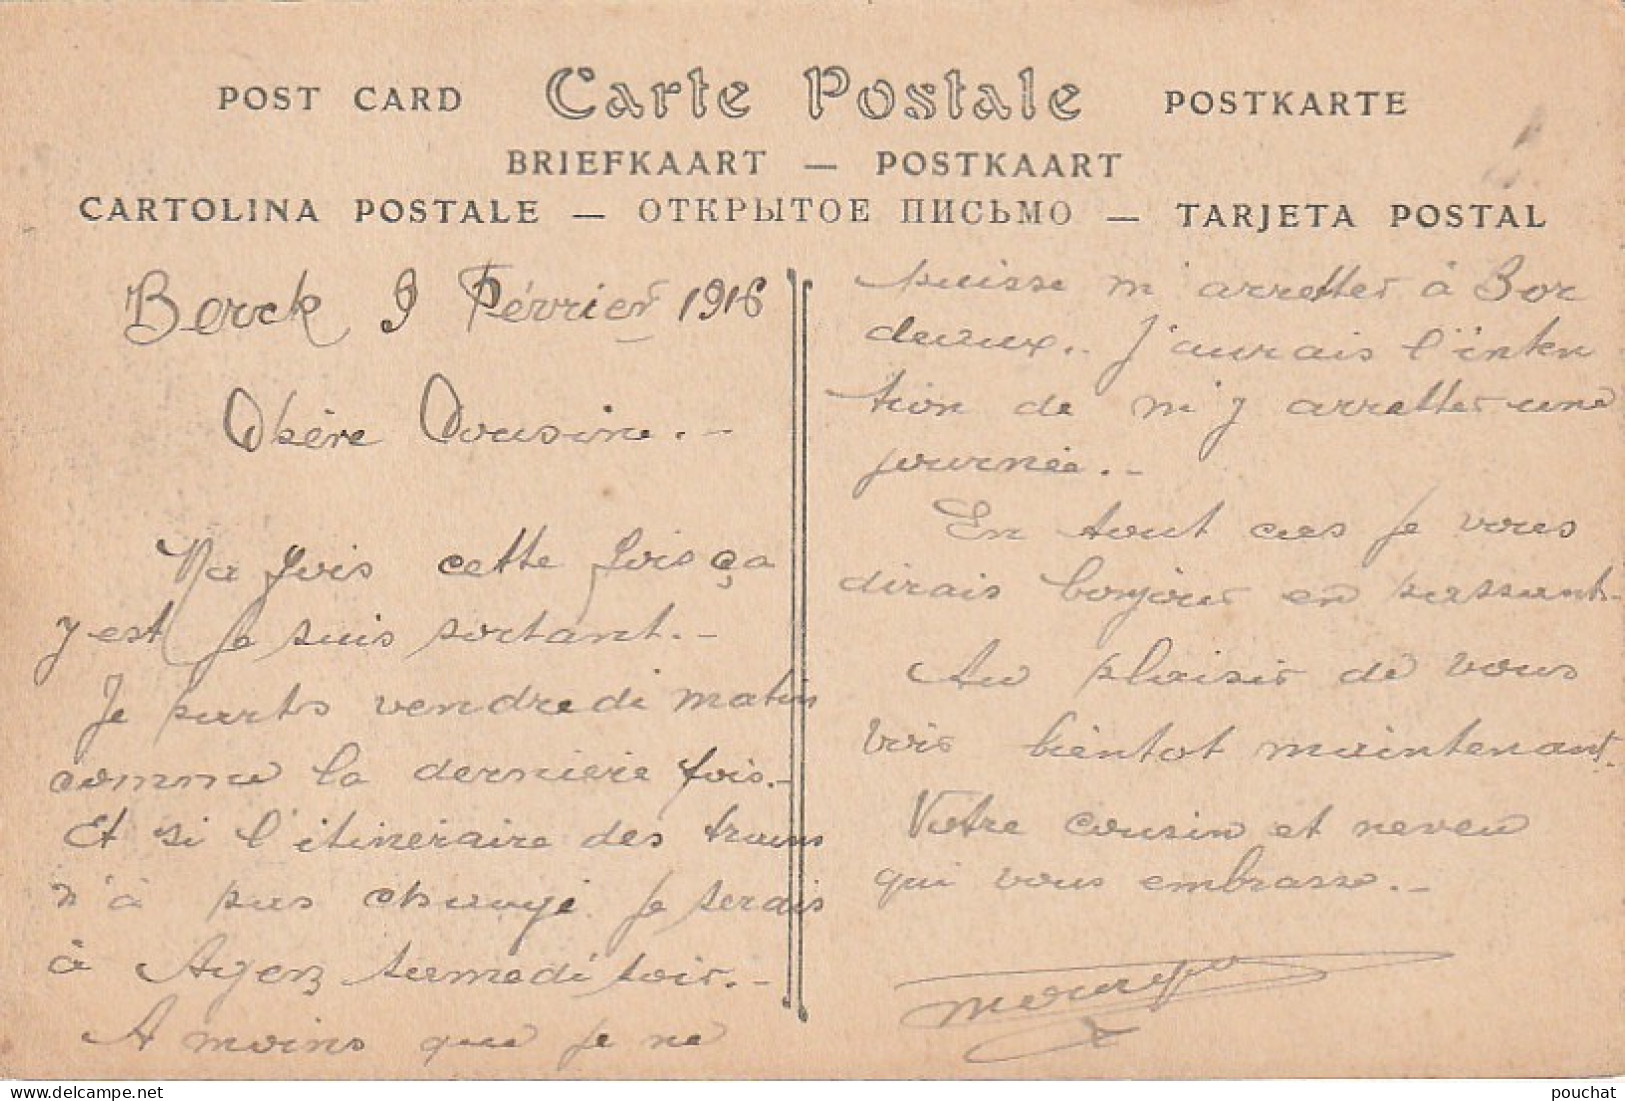 POST CARD Carte Postale POSTKARTE
BRIEFKAART — POSTKAART
CARTOLINA POSTALE — ОТКРЫТОЕ ПИСЬМО — TARJETA POSTAL
Berck 9 Février 1916
Chère Cousine. -
Ma fois cette fois ça
y est je suis sortant. -
Je parts vendredi matin
comme la derniere fois. -
Et si l'itineraire des trains
n'à pas changé. je serais
à Agen samedi soir. -
A moins que je ne
puisse m'arretter à Bor
deaux.. J'aurais l'inten
tion de m'y arretter une
journée. -
En tout cas je vous
dirais bonjour en passant-
Au plaisir de vous
voir bientot maintenant.
Votre cousin et neveu
qui vous embrasse. -
pouchat